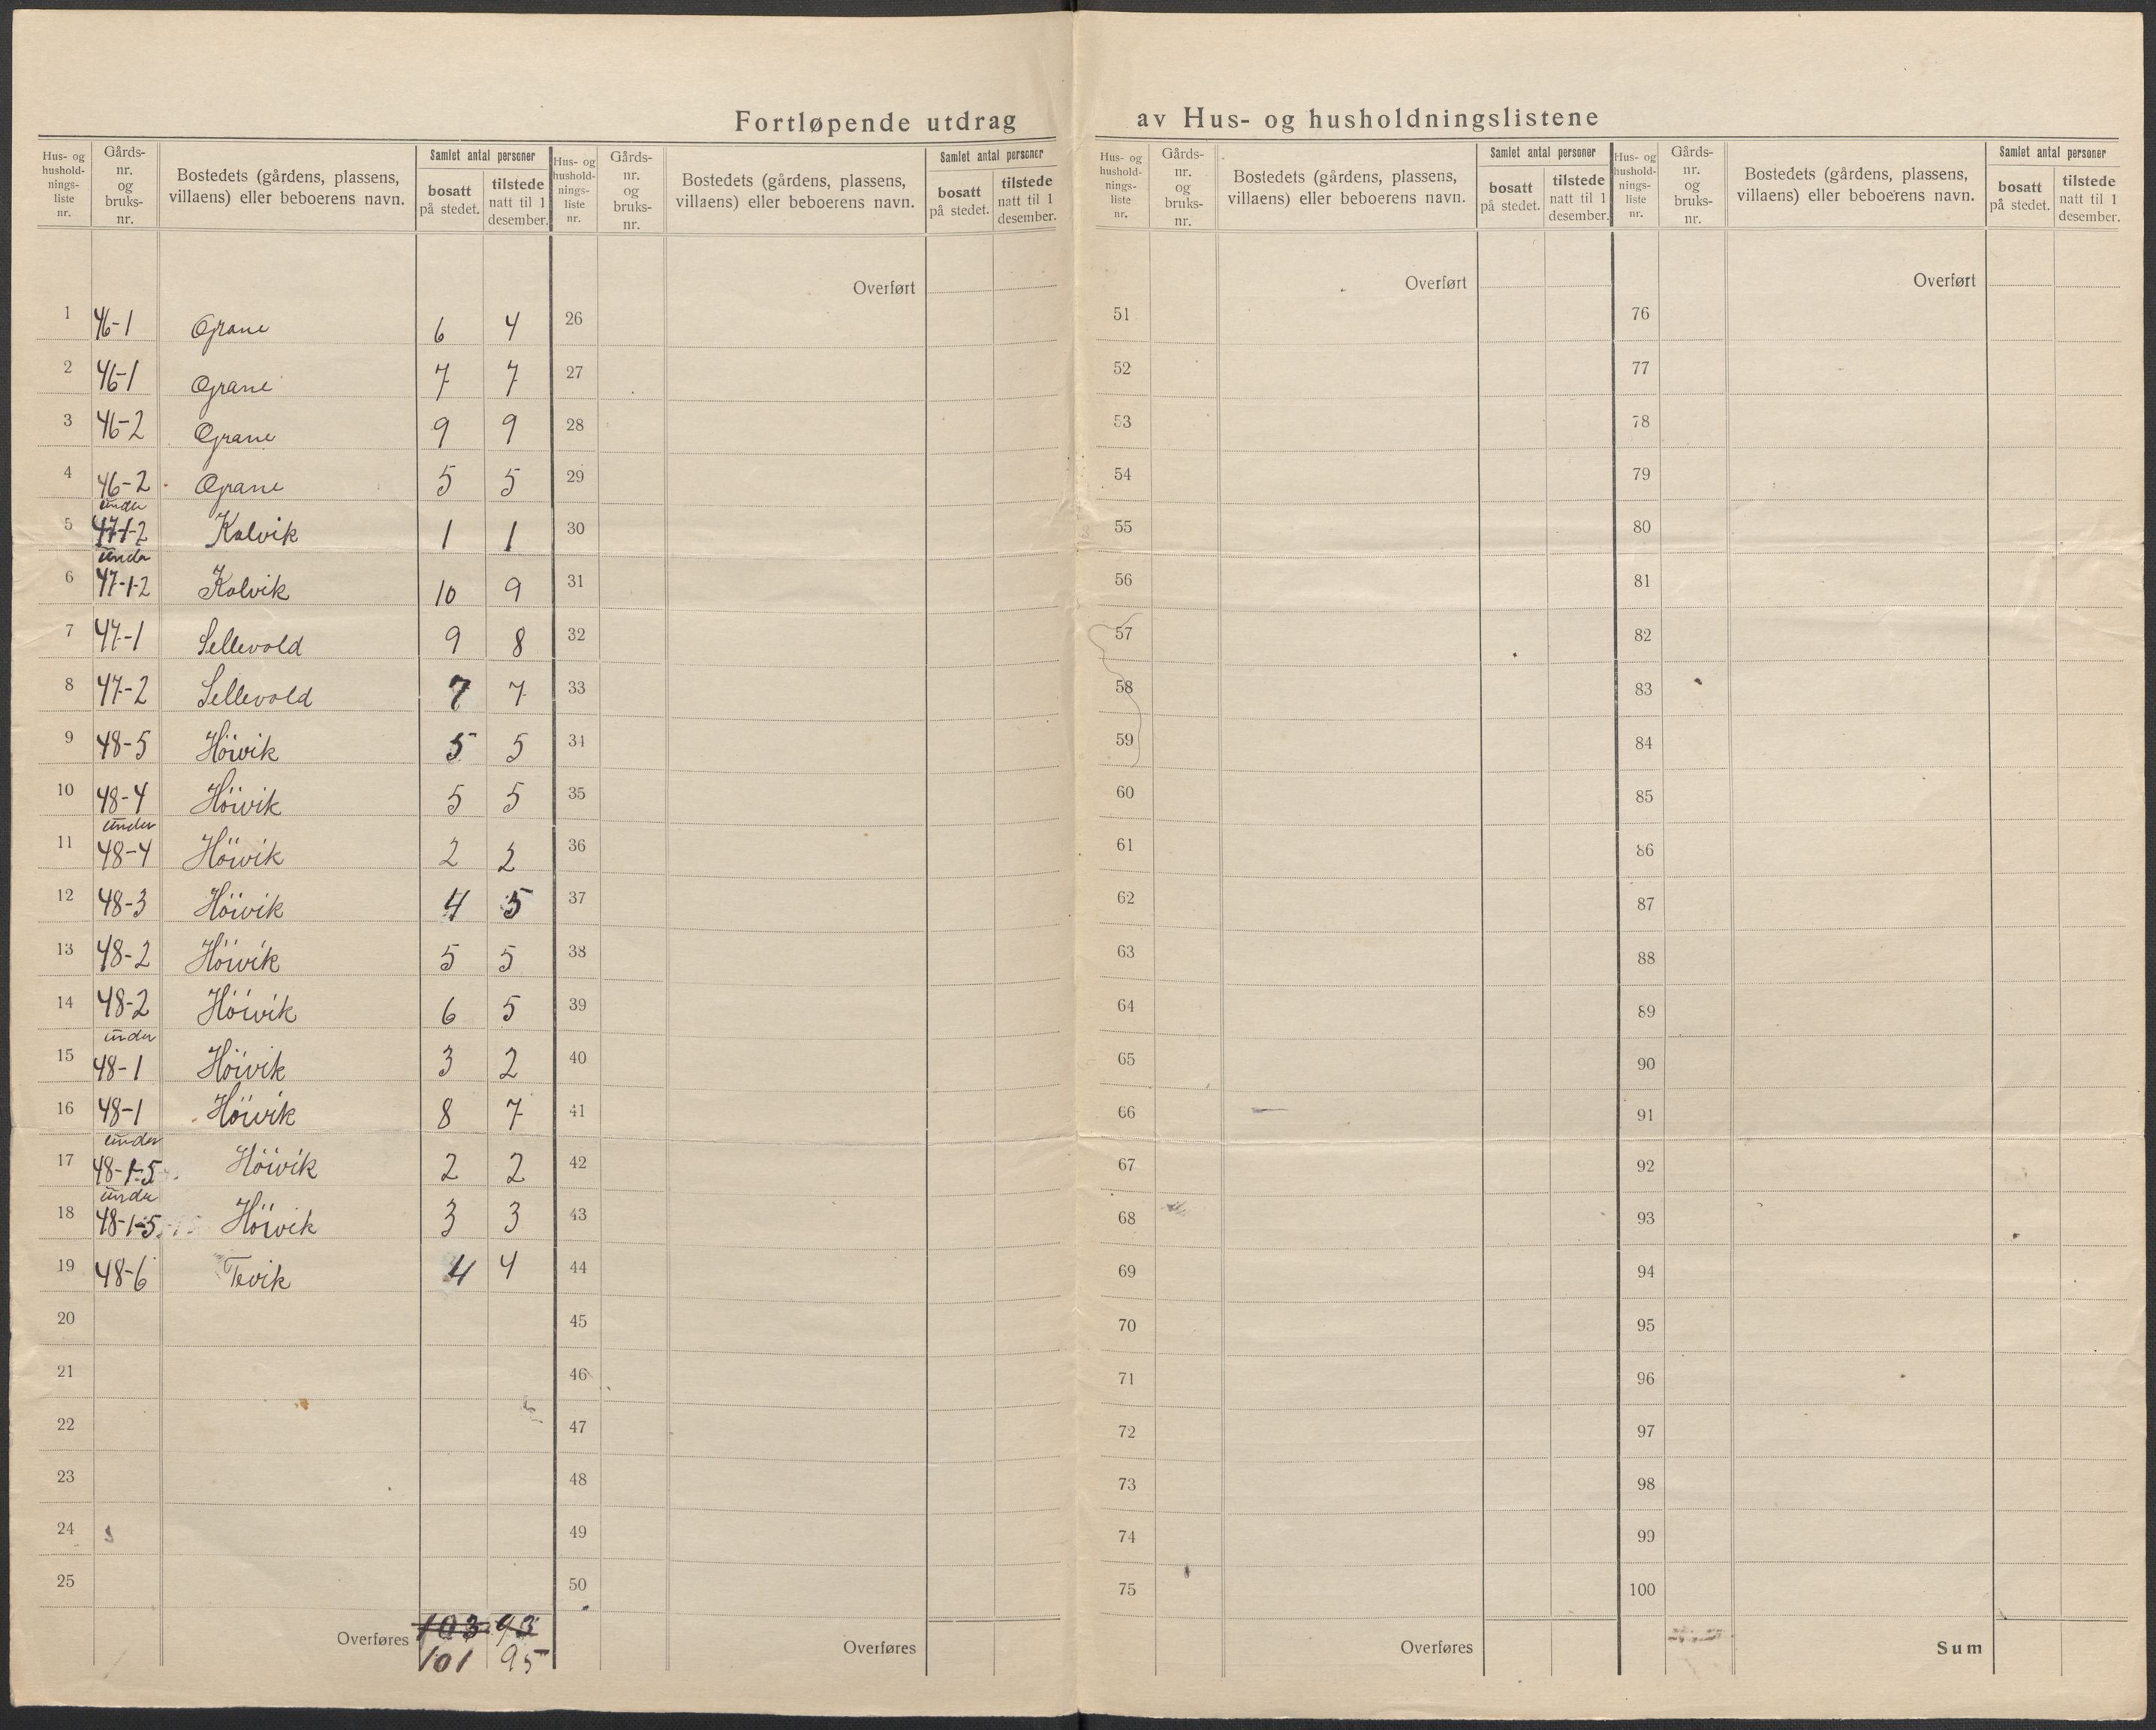 Fortløpende utdrag av Hus- og husholdningslistene
Hus- og hushold- nings- liste nr. Gårds- nr. og bruks- nr. Bostedets (gårdens, plassens, villaens) eller beboerens navn. Samlet antal personer bosatt på stedet. tilstede natt til 1 desember.
Hus- og hushold- nings- liste nr. Gårds- nr. og bruks- nr. Bostedets (gårdens, plassens, villaens) eller beboerens navn. Samlet antal personer bosatt på stedet. tilstede natt til 1 desember.
Hus- og hushold- nings- liste nr. Gårds- nr. og bruks- nr. Bostedets (gårdens, plassens, villaens) eller beboerens navn. Samlet antal personer bosatt på stedet. tilstede natt til 1 desember.
Hus- og hushold- nings- liste nr. Gårds- nr. og bruks- nr. Bostedets (gårdens, plassens, villaens) eller beboerens navn. Samlet antal personer bosatt på stedet. tilstede natt til 1 desember.
Overført Overført Overført
1 46-1 Grane 6 4 26 51 76
2 46-1 Grane 7 7 27 52 77
3 46-2 Grane 9 9 28 53 78
4 46-2 Grane 5 5 29 54 79
under
5 47-1-2 Kalvik 1 1 30 55 80
under
6 47-1-2 Kalvik 10 9 31 56 81
7 47-1 Sellevold 9 8 32 57 82
8 47-2 Sellevold 7 7 33 58 83
9 48-5 Höivik 5 5 34 59 84
10 48-4 Höivik 5 5 35 60 85
under
11 48-4 Höivik 2 2 36 61 86
12 48-3 Höivik 4 5 37 62 87
13 48-2 Höivik 5 5 38 63 88
14 48-2 Höivik 6 5 39 64 89
under
15 48-1 Höivik 3 2 40 65 90
16 48-1 Höivik 8 7 41 66 91
under
17 48-1-5 Höivik 2 2 42 67 92
under
18 48-1-5 Höivik 3 3 43 68 93
19 48-6 Tevik 4 4 44 69 94
20 45 70 95
21 46 71 96
22 47 72 97
23 48 73 98
24 49 74 99
25 50 75 100
Overføres 103 93 Overføres Overføres Sum
101 95